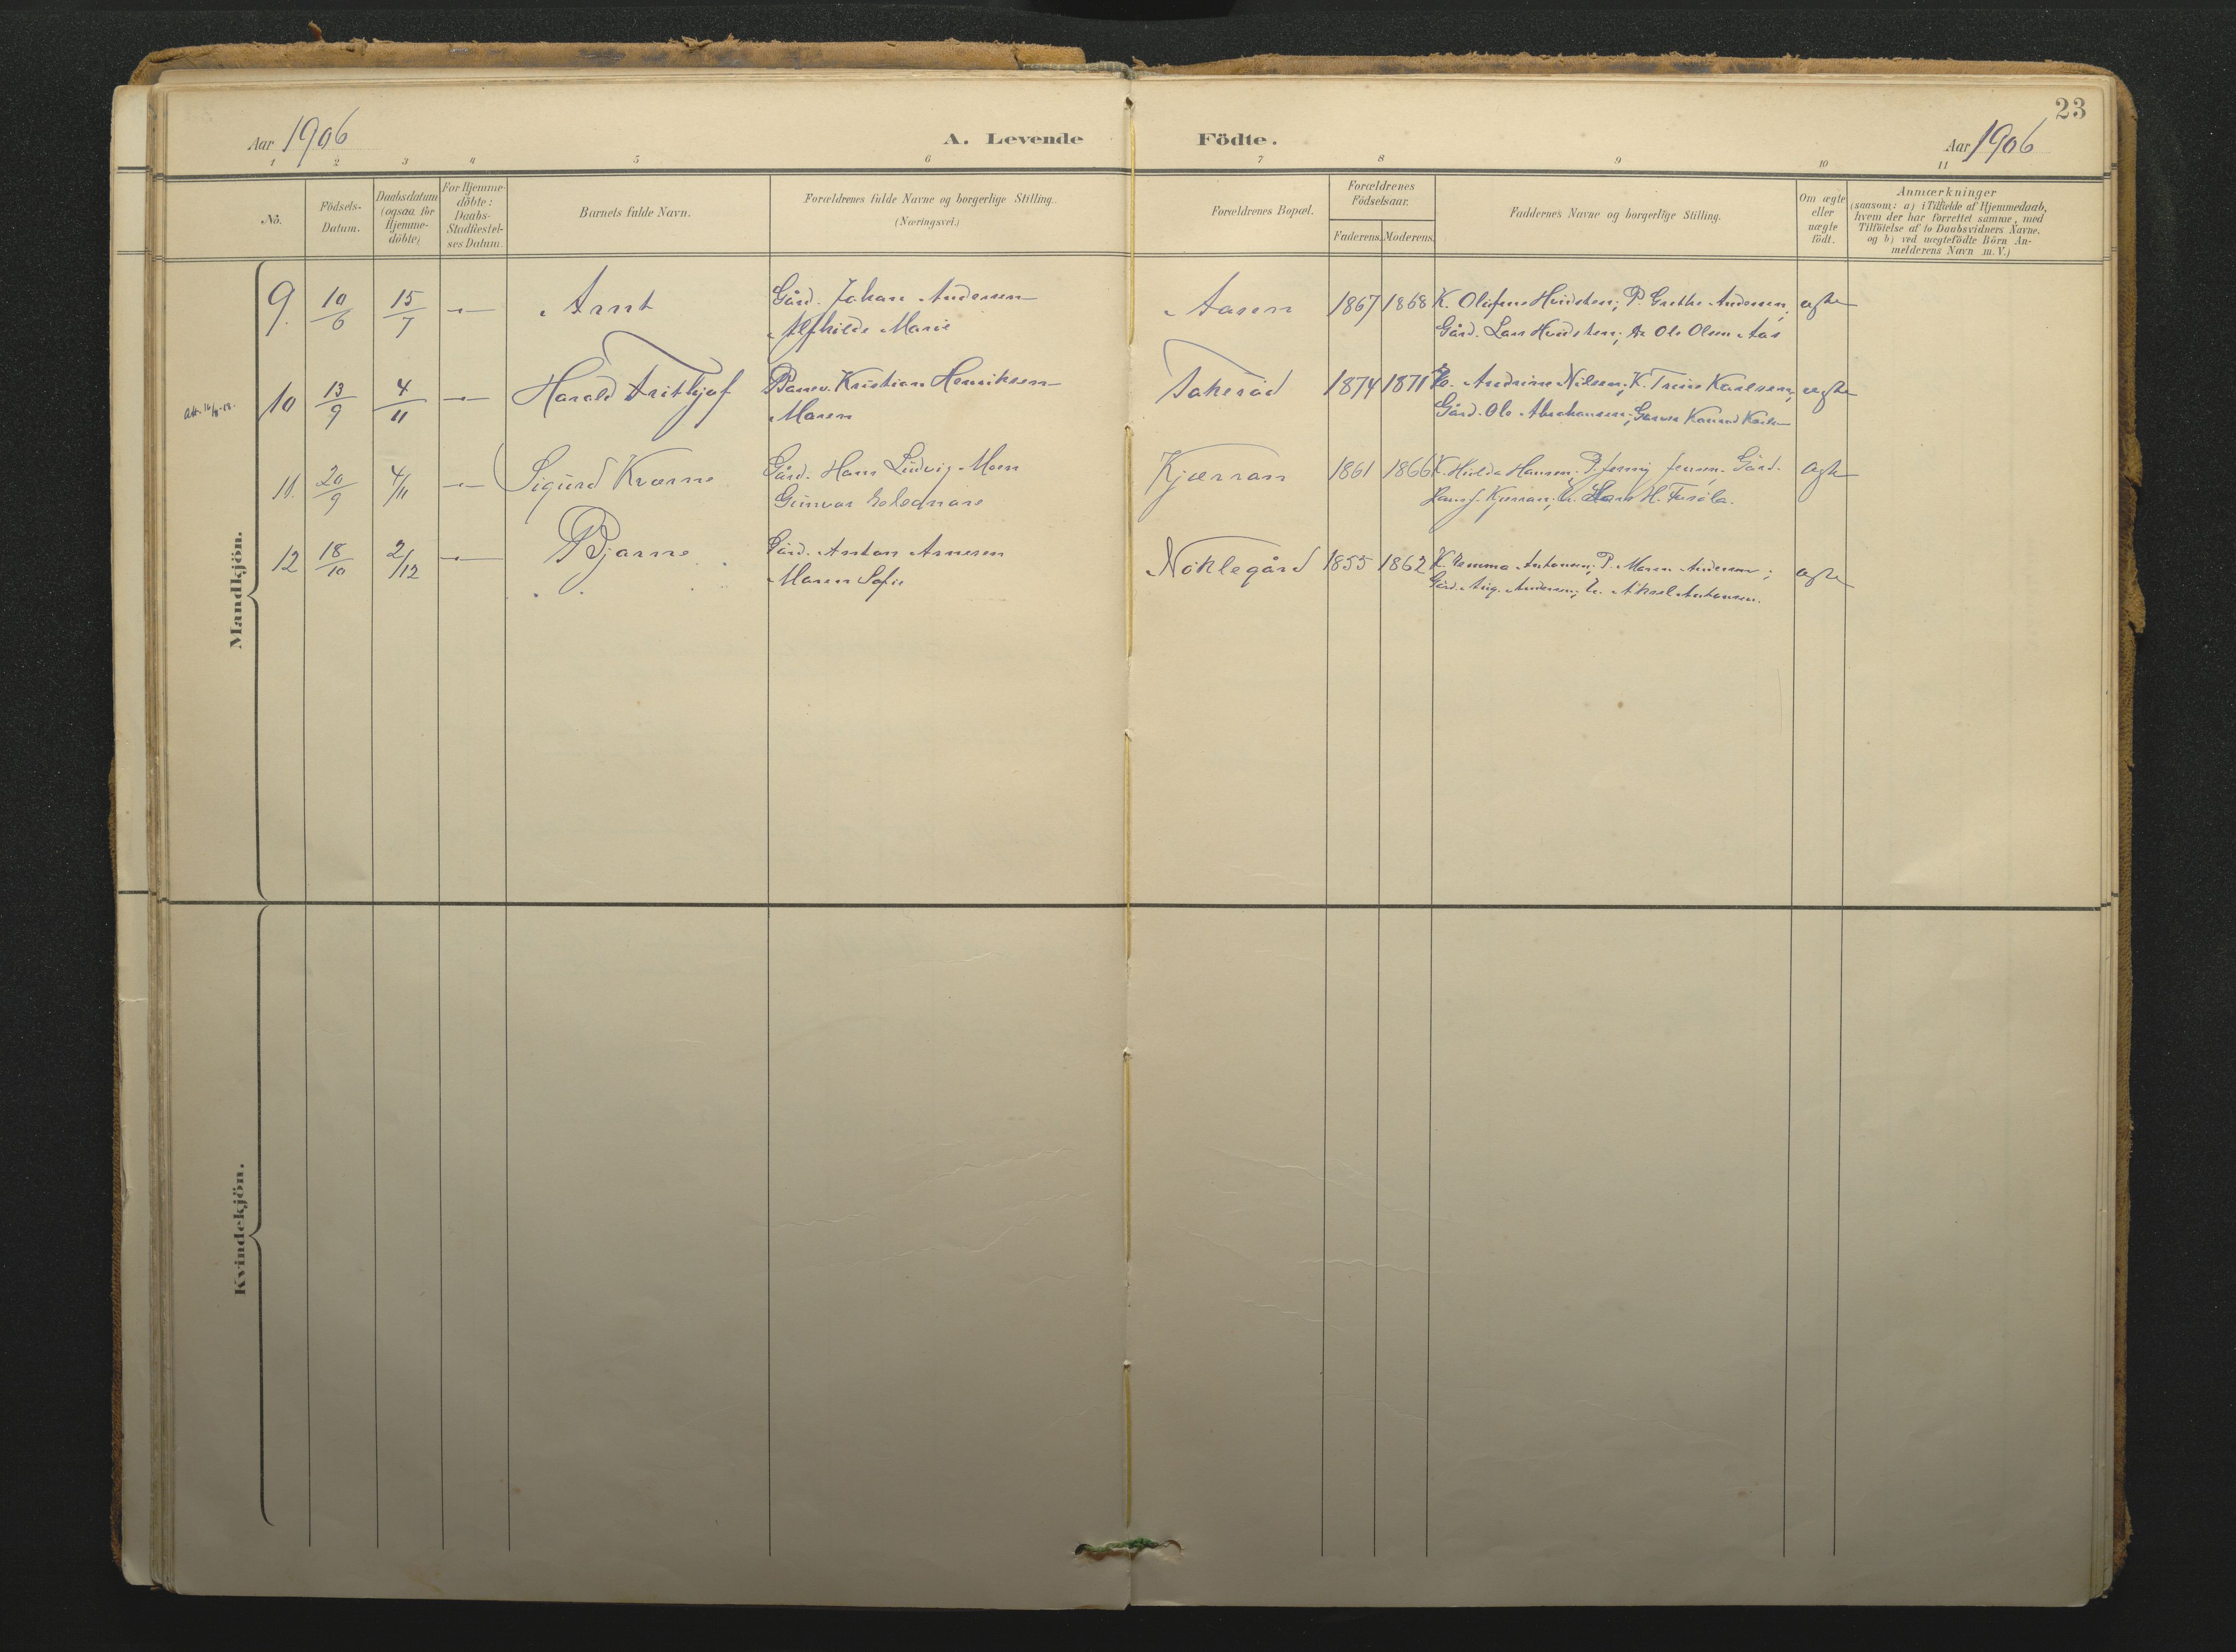 23
Aar 1906
A. Levende Födte.
Aar 1906
1 2 3 4 5 6 7 8 9 10 11
No.
Födsels-
Datum.
Daabsdatum
(ogsaa for
Hjemme-
döbte)
For Hjemme-
döbte:
Daabs-
Stadfæstel-
ses Datum.
Barnets fulde Navn.
Forældrenes fulde Navne og borgerlige Stilling.
(Næringsvei.)
Forældrenes Bopæl.
Forældrenes
Födselsaar.
Faderens. Moderens.
Faddernes Navne og borgerlige Stilling.
Om ægte
eller
uægte
födt.
Anmærkninger
(saasom: a) i Tilfælde af Hjemmedaab,
hvem der har forrettet samme, med
Tilföielse af to Daabsvidners Navne.
og b) ved uægtefödte Börn An-
melderens Navn m. V.)
Mandkjön.
9. 10/6 15/7 -"- Arnt Gård. Johan Andersen Aasen 1867 1868 K. Olufine Hvidsten; P. Grethe Andersen; ægte
Alfhilde Marie Gård. Lars Hvidsten; Ole Olsen Aas
10 13/9 4/11 -"- Harald Frithjof Banev. Kristian Henriksen Takeröd 1874 1871 Andrine Nilsen; K. Trine Karlsen; ægte
Maren Gård. Ole Abrahamsen; Konrad
11. 20/9 4/11 -"- Sigurd Kværne Gård. Hans Ludvig Moen Kjærran 1861 1866 K. Hulda Hansen; P. Jenny Jensen. Gård. ægte
Gunvor Hans J. Kjærran; Hans H.
12 18/10 2/12 -"- Bjarne Gård. Anton Arnesen Nöklegård 1855 1862 K. Emma Antonsen; P. Maren Andersen; ægte
Maren Sofie Gård. Aug. Andersen; U. Aksel Antonsen.
Kvindekjön.